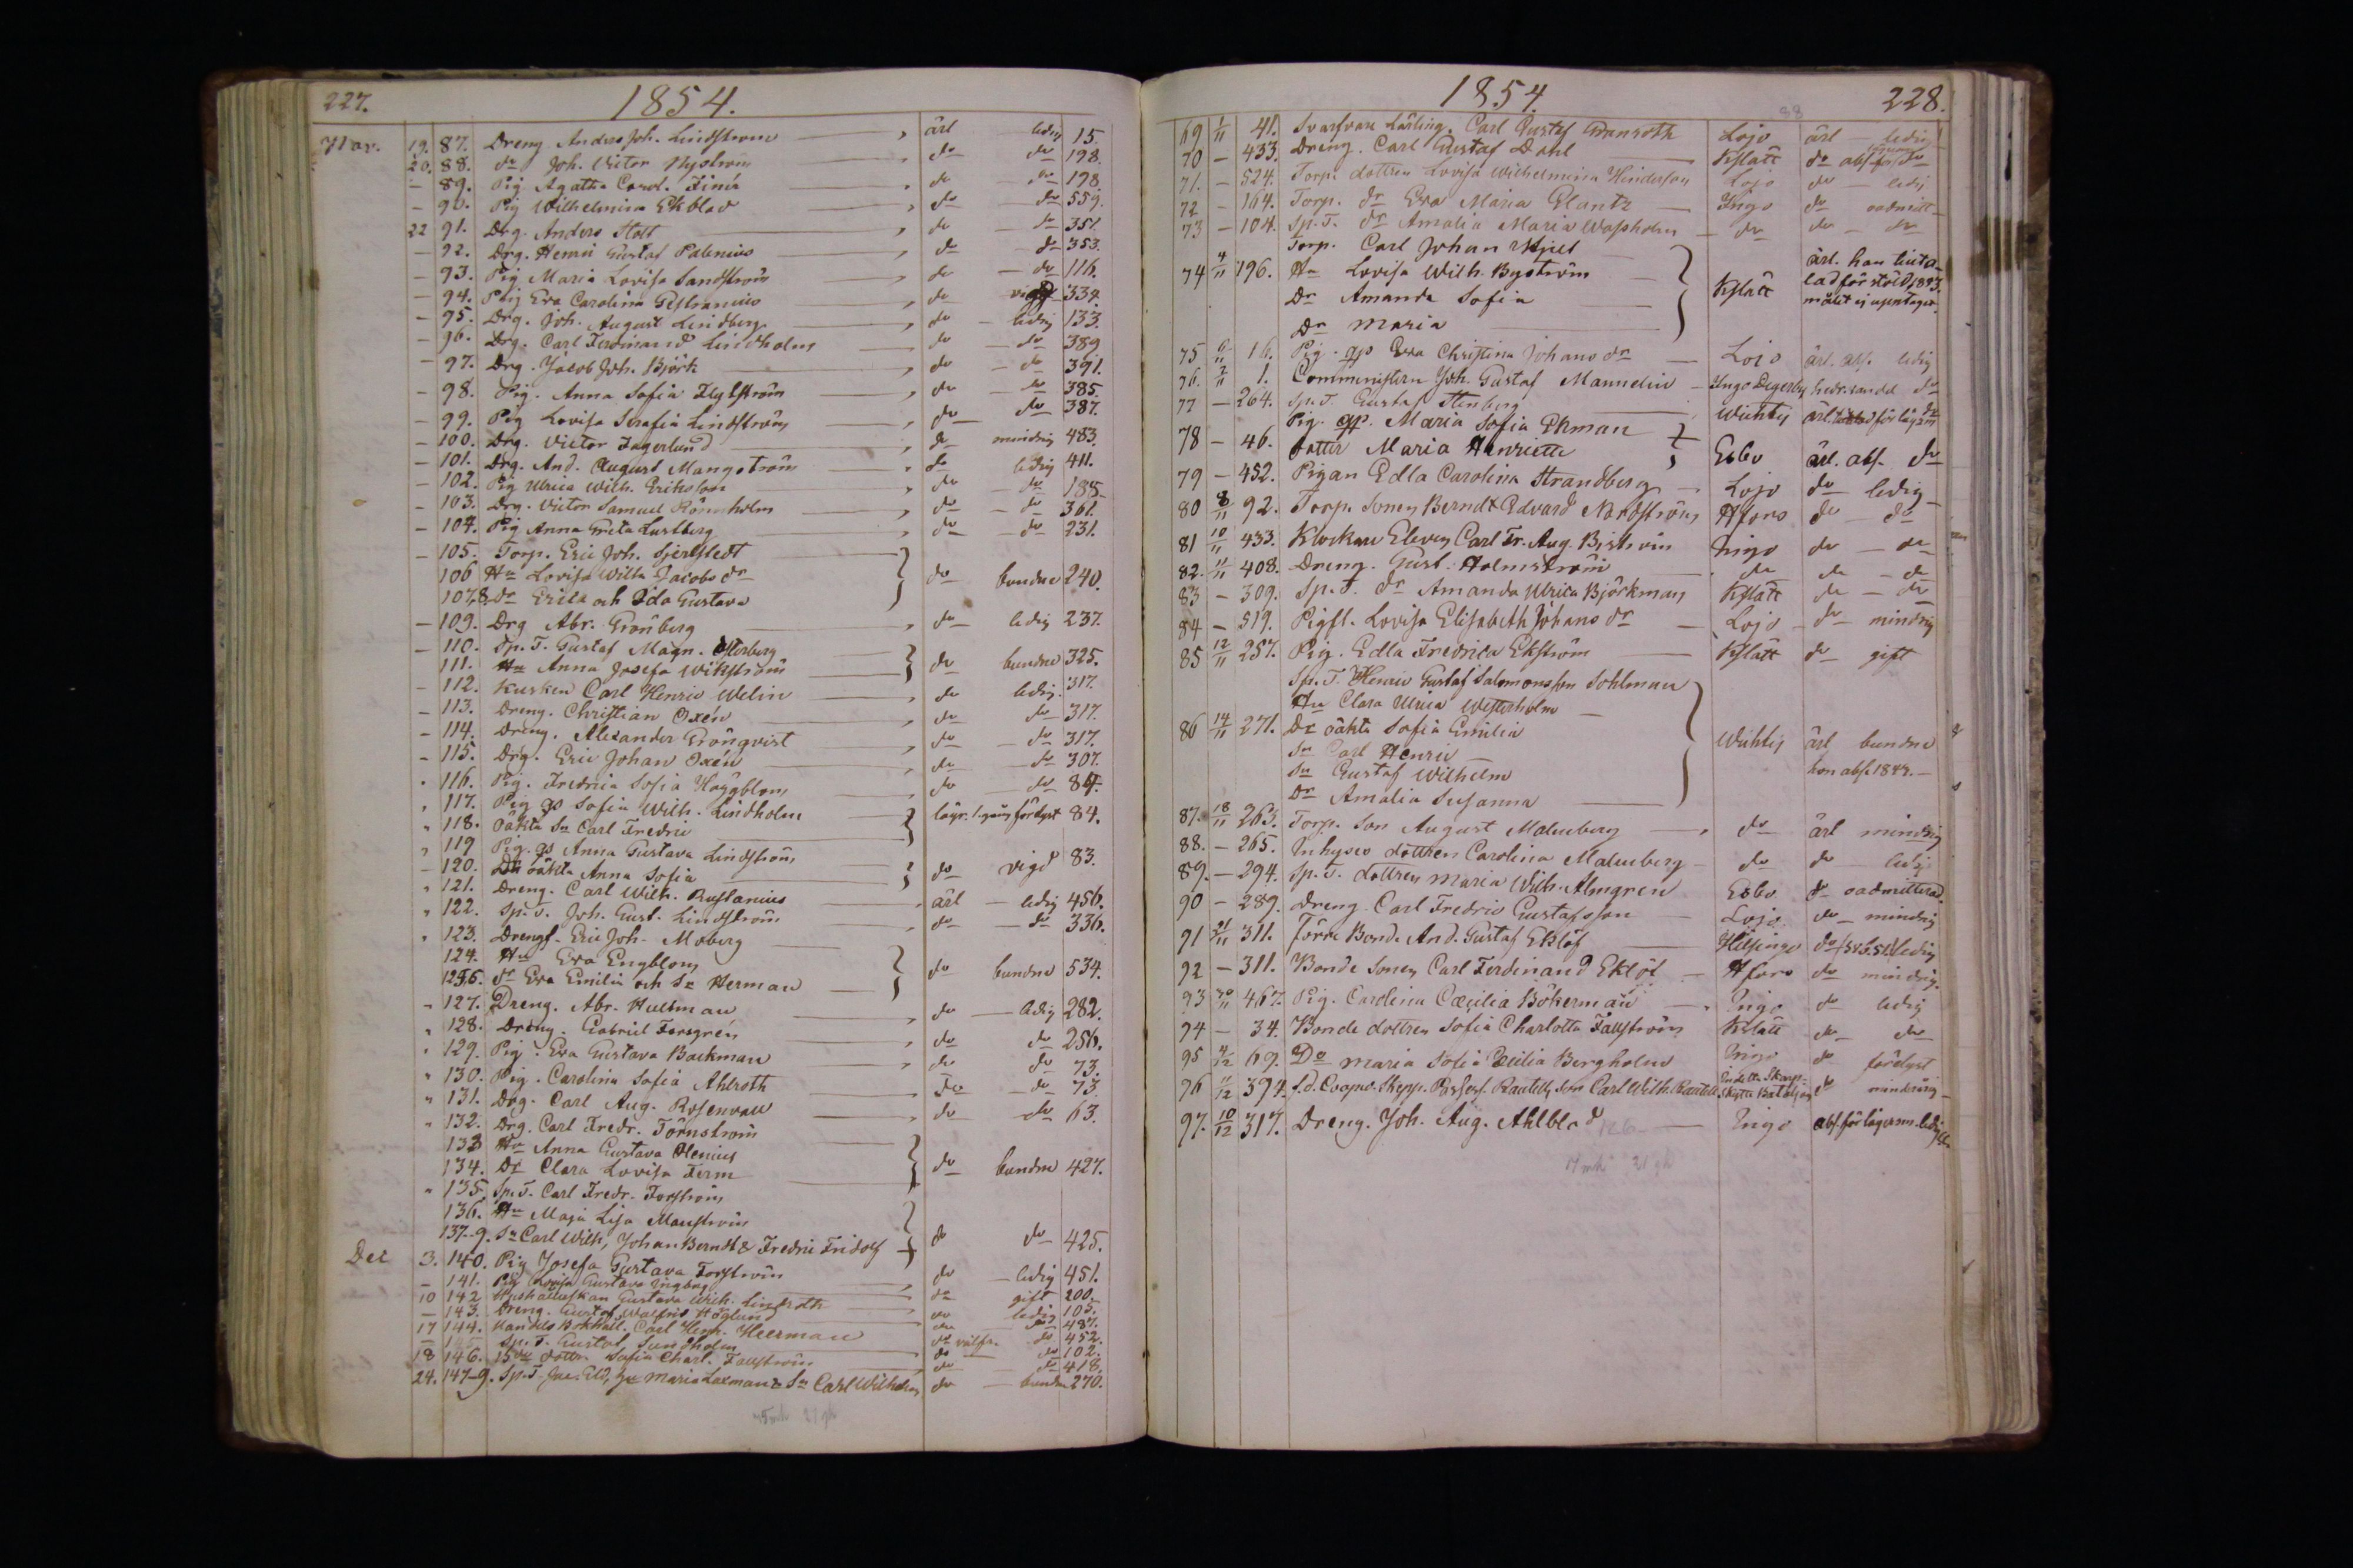 227.
1854.
Nov.
19. 87. Dreng Anders Joh. Lindström ärl ledig 15.
20. 88. do Joh. Victor Nyström do do 198.
— 89. Pig Agatha Carol. Finér do do 198.
— 90. Pig Wilhelmina Ekblad do do 559.
22 91. Drg. Anders Holt do do 351.
— 92. Drg. Henric Gustaf Palenius do do 353.
— 93. Pig Maria Lovisa Sandström do do 116.
— 94. Pig Eva Carolina do 334.
— 95. Drg. Joh. August Lindberg do ledig 133.
— 96. Drg. Carl Ferdinand Lindholm do do 389
— 97. Drg. Jacob Joh. Björk do do 391.
— 98. Pig. Anna Sofia Flytström do do 385.
— 99. Pig Lovisa Serafia Lindström do do 387.
— 100. Drg. Victor Fagerlund do mindrig 483.
— 101. Drg. And. August Mangström do ledig 411.
— 102. Pig Ulrica Wilh. Eriksson do do 188.
— 103. Drg. Victor Samuel Rönnholm do do 361.
— 104. Pig Anna Greta Lustberg do do 231.
— 105. Torp. Eric Joh. Gerstedt
106 Hu Lovisa Wilh Jacobs dr do bundne 240.
107,8. dr Erica och Ida Gustava
— 109. Drg Abr. Grönberg do ledig 237.
— 110. Sp. T. Gustaf Magn. Österberg
111. Hu Anna Josefa Wikström do bundne 325.
— 112. Kusken Carl Henric Welin do ledig. 317.
— 113. Dreng. Christian Oxén do do 317.
— 114. Dreng. Alexander Grönqvist do do 317.
— 115. Drg. Eric Johan Oxén do do 307.
" 116. Pig. Fredrica Sofia Häggblom do do 84.
" 117. Pig qp Sofia Wilh. Lindholm lägr. 1. gång förlyst 84.
" 118. Oäkta Sn Carl Fredric
" 119 Pig. qp Anna Gustava Lindström
— 120. Dr oäkta Anna Sofia do vigd 83.
" 121. Dreng. Carl Wilh. Rustanius ärl ledig 456.
" 122. Sp. T. Joh. Gust. Lindström do do 336.
" 123. Drengf. Eric Joh. Moberg
124. Hu Eva Engblom
125,6. dr Eva Emilia och Sn Herman do bundne 534.
" 127. Dreng. Abr. Hultman do ledig 282.
" 128. Dreng. Gabriel Forsgrén do do 256.
" 129. Pig. Eva Gustava Backman do do 73.
" 130. Pig. Carolina Sofia Ahlroth do do 73.
" 131. Drg. Carl Aug. Rosenvall do do 63.
" 132. Drg. Carl Fredr. Törnström
133 Hu Anna Gustava Olenius
134. Dr Clara Lovisa Ferm do bundne 427.
" 135. Sp. T. Carl Fredr. Forström
136. Hu Maja Lisa Manström
137-9. Sn Carl Wilh, Johan Berndt & Fredric Fridolf do do 425.
Dec 3. 140. Pig Josefa Gustava Forström do ledig 451.
— 141. Pig Lovisa Gustava Ingberg do gift 200.
10 142 Hushållerskan Gustava Wilh. Lindroth do ledig 105.
— 143. Dreng. Gustaf Walfrid Höglund do do 487.
17 144. Handels Bokhåll. Carl Henr. Heerman do välfr. do 452.
— 145 Sp. T. Gustaf Sundholm do do 102.
18 146. dottr. Sofia Charl. Fallström do do 418.
24. 147-9. Sp. T. Maria Laxman & Sn Carl Wilhelm do bundne 270.
1854.
228.
88
69 1/11 41. Svarfvare Lärling. Carl Gustaf Granroth Lojo ärl ledig
70 — 433. Dreng. Carl Gustaf Dahl Kslätt do abs. do
71. — 524. Torp. dottren Lovisa Wilhelmina Hindersson Lojo do ledig
72 — 164. Torp. dr Eva Maria Glantz Ingo do oadmitt
73 — 104. Sp. T. dr Amalia Maria Wassholm do do do
Torp. Carl Johan Kjell
74 4/11 196. Hu Lovisa Wilh. Byström Kslätt ärl. han tilltalad för stöld 1843. målet ej upptaget.
Dr Amanda Sofia
Dr Maria
75 6/11 16. Pig. qp Eva Christina Johans dr Lojo ärl. abs. ledig
76. 7/11 1. Comministern Joh. Gustaf Mannelin Ingo Degerby do
77 — 264. Sp. T. Gustaf Stenberg Wichtis
Pig. qp. Maria Sofia Ekman
78 — 46. Dotter Maria Henriette Esbo ärl. abs. do
79 — 452. Pigan Edla Carolina Strandberg Lojo do ledig
80 8/11 92. Torp. Sonen Berndt Edvard Nordström Hfors do do
81 10/11 433. Klockare Eleven Carl Fr. Aug. Byström Ingo do do
82. 11/11 408. Dreng. Gust. Holmström do do do
83 — 309. Sp. T. dr Amanda Ulrica Björkman Kslätt do do
84 — 519. Pigfl. Lovisa Elisabeth Johans dr Lojo do mindrig
85 12/11 257. Pig. Edla Fredrica Ekström Kslätt do gift
Sp. T. Henric Gustaf Salomonsson Sohlman
Hu Clara Ulrica Westerholm
86 14/11 271. Dr oäkta Sofia Emilia Wichtis ärl bundne
Sn Carl Henric hon abs. 1844.
Sn Gustaf Wilhelm
Dr Amalia Susanna
87. 18/11 263. Torp. Son August Malmberg do ärl mindrig
88. — 265. Inhyses dottren Carolina Malmberg do do ledig
89. — 294. Sp. T. dottren Maria Wilh. Almgren Esbo do oadmitterad.
90 — 289. Dreng Carl Fredric Gustafsson Lojo do mindrig
91 21/11 311. Förre Bond. And. Gustaf Eklöf Helsinge do ledig
92 — 311. Bonde Sonen Carl Ferdinand Eklöf Hfors do mindrig.
93 30/11 467. Pig. Carolina Cæcilia Bökerman Ingo do ledig
94 — 34. Bonde dottren Sofia Charlotta Fallström Kslätt do do
95 4/12 69. Do Maria Sofia Cecilia Bergholm Ingo do förlyst
96 11/12 394. Carl Wilh. Indelta Skarpskytte Bataljon do mindrig
97. 10/12 317. Dreng. Joh. Aug. Ahlblad Ingo abs. för lägersm. ledig